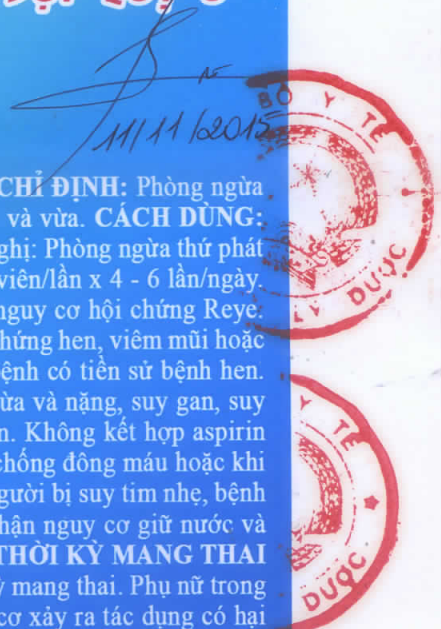 11/11/2015
BỘ Y TẾ
DƯỢC
CHỈ ĐỊNH: Phòng ngừa
và vừa. CÁCH DÙNG:
nghị: Phòng ngừa thứ phát
viên/lần x 4 - 6 lần/ngày.
nguy cơ hội chứng Reye.
chứng hen, viêm mũi hoặc
bệnh có tiền sử bệnh hen.
vừa và nặng, suy gan, suy
n. Không kết hợp aspirin
chống đông máu hoặc khi
người bị suy tim nhẹ, bệnh
thận nguy cơ giữ nước và
THỜI KỲ MANG THAI
kỳ mang thai. Phụ nữ trong
cơ xảy ra tác dụng có hại
Y TẾ
DƯỢC